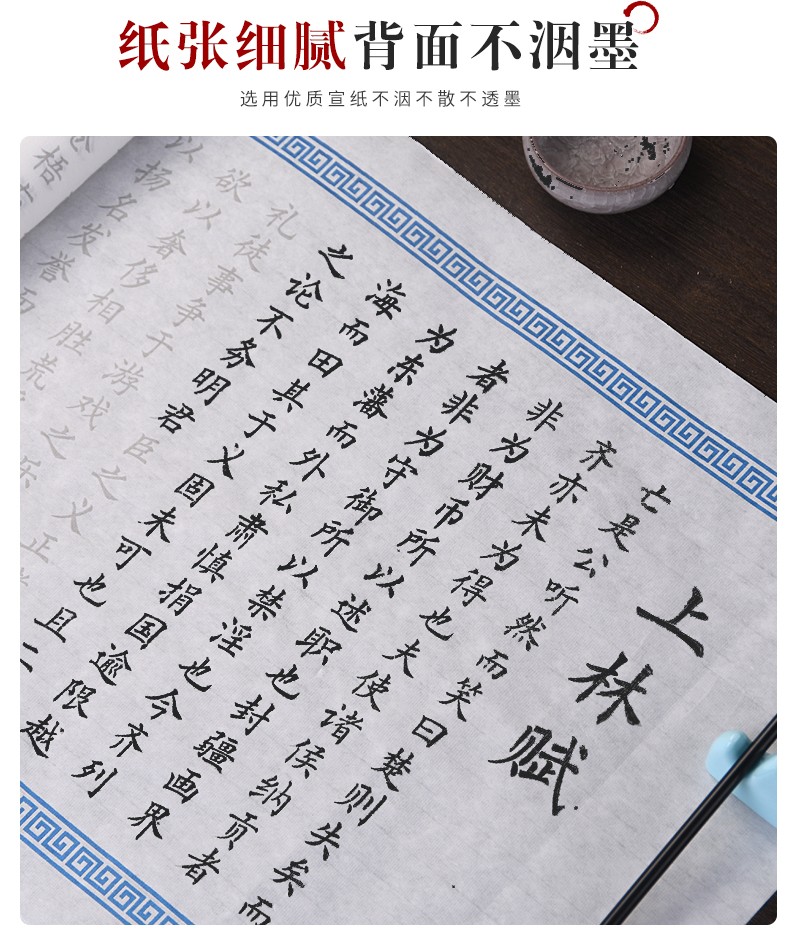 纸张细腻背面不洇墨
选用优质宣纸不洇不散不透墨
上林赋
亡是公听然而笑曰楚则失矣而
齐亦未为得也夫使诸侯纳贡者
非为财币所以述职也封疆画界
者非为守御所以禁淫也今齐列
为东藩而外私肃慎捐国逾限越
海而田其于义固未可也且二
之论不务明君臣之义正
礼徒事争于游戏之乐
欲以奢侈相胜荒
以扬名发誉而
梧